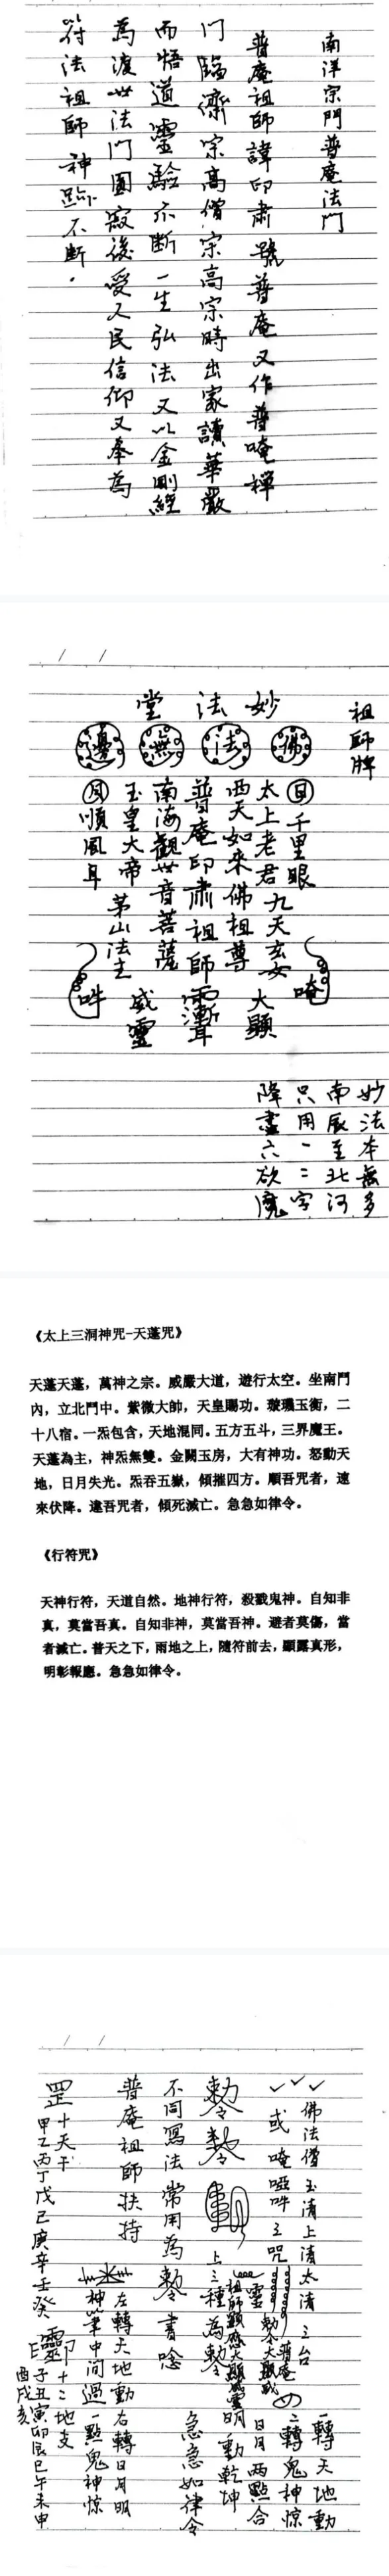 南洋宗門普庵法門
普庵祖師諱印肅號普庵又作普唵禪
門臨濟宗高僧宗高宗時出家讀華嚴
而悟道靈驗不斷一生弘法又以金剛經
為渡世法門圓寂後受人民信仰又奉為
符法祖師神跡不斷.
祖師牌
妙法堂
佛法無邊
日千里眼
太上老君九天玄女
西天如來佛祖尊大顯
普庵印肅祖師
南海觀世音菩薩威靈
玉皇大帝茅山法主
月順風耳
唵
吽
妙法本無多
南辰至北河
只用一二字
降盡六欲魔
《太上三洞神咒-天蓬咒》
天蓬天蓬，萬神之宗。威嚴大道，遊行太空。坐南鬥
內，立北鬥中。紫微大帥，天皇賜功。璇璣玉衡，二
十八宿。一炁包含，天地混同。五方五斗，三界魔王。
天蓬為主，神炁無雙。金闕玉房，大有神功。怒動天
地，日月失光。炁吞五嶽，傾摧四方。順吾咒者，速
來伏降。違吾咒者，傾死滅亡。急急如律令。
《行符咒》
天神行符，天道自然。地神行符，殺戮鬼神。自知非
真，莫當吾真。自知非神，莫當吾神。避者莫傷，當
者滅亡。普天之下，雨地之上，隨符前去，顯露真形，
明彰報應。急急如律令。
佛法僧玉清上清太清三台
或唵啞吽三咒
一轉天地動
二轉鬼神惊
日月兩點合
明一動乾坤
敕令
上三種為敕令
不同寫法常用為敕令書唸
急急如律令
普庵祖師扶持
左轉天地動右轉日月明
神筆中間過一點鬼神惊
罡十天干
甲乙丙丁戊己庚辛壬癸
靈印十二地支
子丑寅卯辰巳午未申
酉戌亥